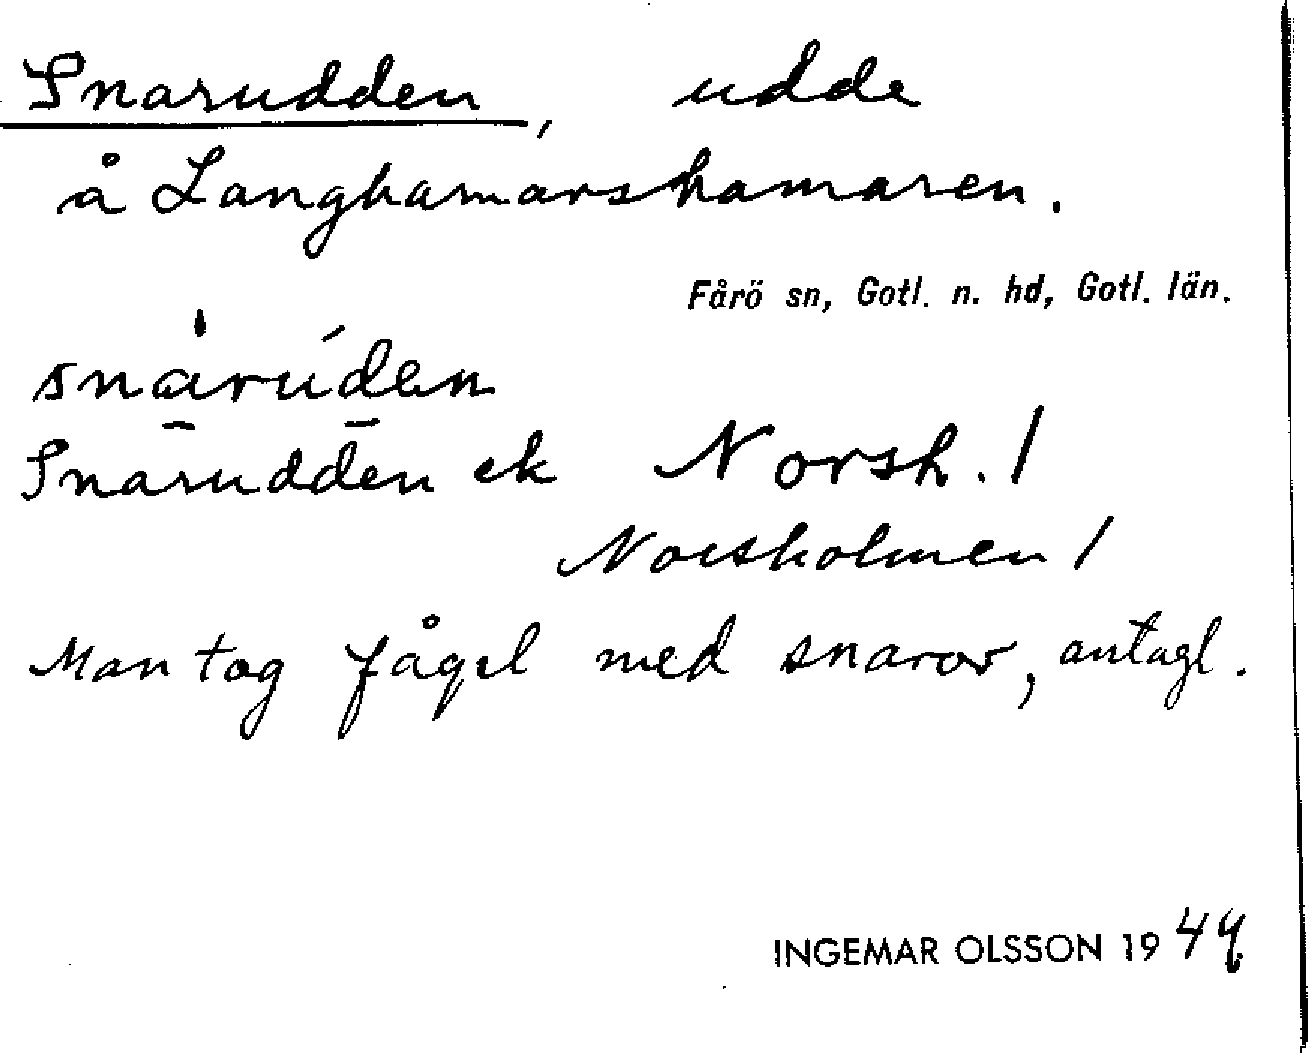 Snarudden, udde
å Langhamarshamaren.
Fårö sn, Gotl. n. hd, Gotl. län.
snarúden
Snarudden ek Norsh. /
Norsholmen /
Man tog fågel med snaror, antagl.
INGEMAR OLSSON 1949